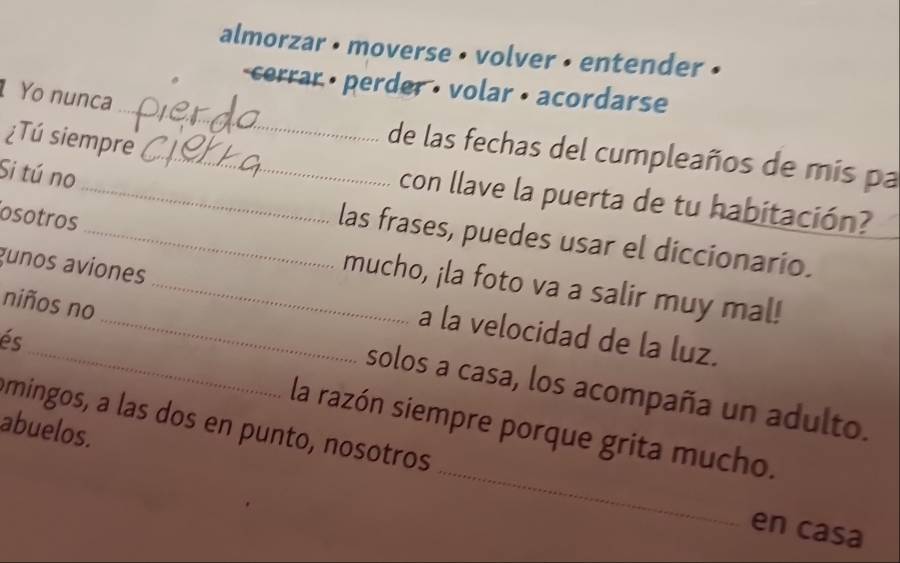 almorzar • moverse • volver • entender •
cerrar • perder • volar • acordarse
1 Yo nunca pierdo de las fechas del cumpleaños de mis pa
¿Tú siempre cierra con llave la puerta de tu habitación?
Si tú no las frases, puedes usar el diccionario.
osotros mucho, ¡la foto va a salir muy mal!
gunos aviones a la velocidad de la luz.
niños no solos a casa, los acompaña un adulto.
és la razón siempre porque grita mucho.
omingos, a las dos en punto, nosotros en casa
abuelos.